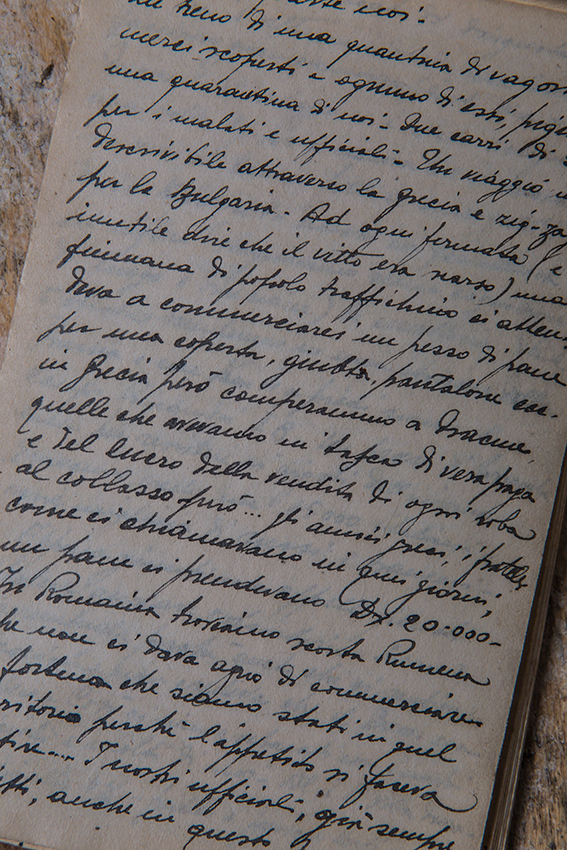 un treno di una quantità di vagon
merci scoperti = ognuno di essi, pigia
una quarantina di noi = due carri di
per i malati e ufficiali = Un viaggio in
descrivibile attraverso la grecia e zig-za
per la Bulgaria = Ad ogni fermata (e
inutile dire che il vitto era scarso) una
fiumana di popolo traffichino ci atten
deva a commerciarci un pezzo di pane
per una coperta, giubba, pantalone ecc.
in Grecia però comperammo a Dracme
quelle che avevamo in tasca di vera paga
e del lucro della vendita di ogni roba
al collasso però... gli amici greci, i fratelli
come ci chiamavano in quei giorni,
un pane ci prendevano Dr. 20.000=
In Romania trovammo scorta Rumena
che non ci dava agio di commerciare
fortuna che siamo stati in quel
ritorio perchè l'appetito si faceva
tire.... I nostri ufficiali, già sempre
tti, anche in questo